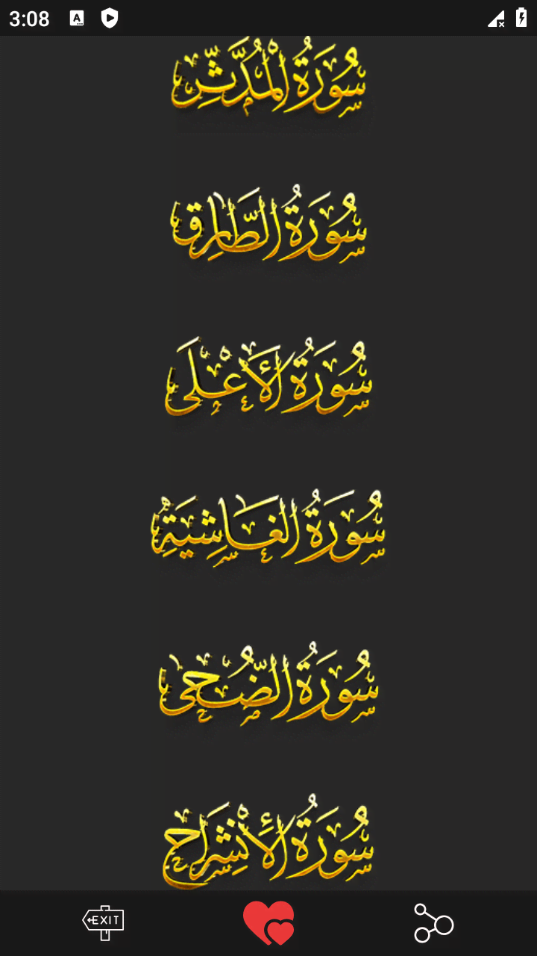 3:08
A
سُورَةُ الْمُدَّثِّر
سُورَةُ الطَّارِق
سُورَةُ الأَعْلَى
سُورَةُ الغَاشِيَةِ
سُورَةُ الضُّحَى
سُورَةُ الأَنْشِرَاح
EXIT